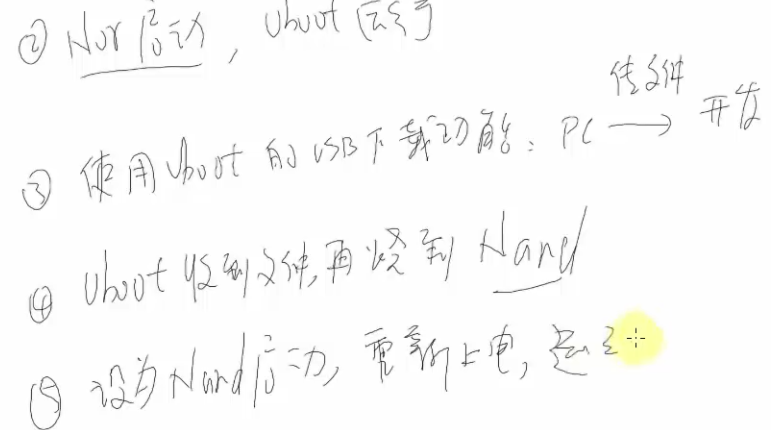 ② Nor启动, Uboot运行
传文件
③ 使用Uboot的USB下载功能: PC → 开发
④ Uboot收到文件,再烧到Nand
⑤ 设为Nand启动, 重新上电,